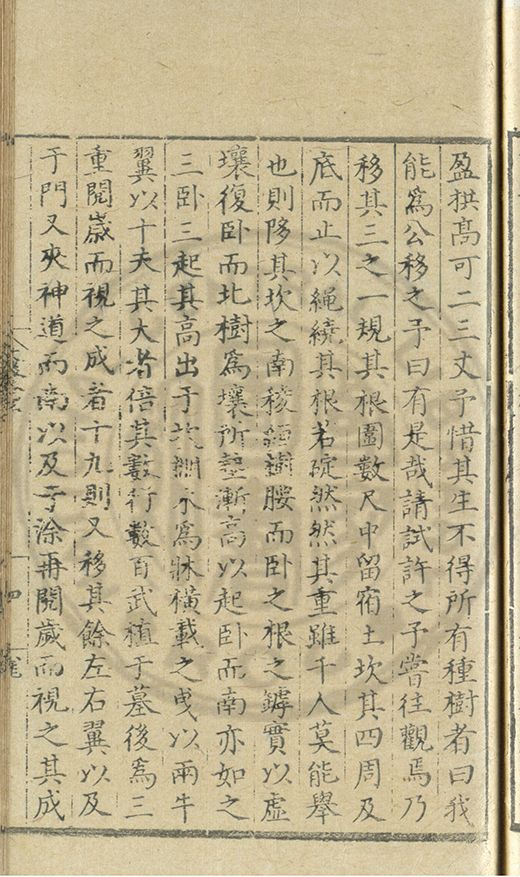 盈拱高可二三丈予惜其生不得所有種樹者曰我
能為公移之予曰有是哉請試許之予嘗往觀焉乃
移其三之一規其根圍數尺中留宿土坎其四周及
底而止以繩繞其根若碇然然其重雖千人莫能舉
也則陊其坎之南稜絙樹腰而卧之根之罅實以虛
壤復卧而北樹為壤所墊漸高以起卧而南亦如之
三卧三起其高出于坎棚木為牀橫載之曳以兩牛
翼以十夫其大者倍其數行數百武植于墓後為三
重閱歲而視之成者十九則又移其餘左右翼以及
于門又夾神道而南以及于涂再閱歲而視之其成